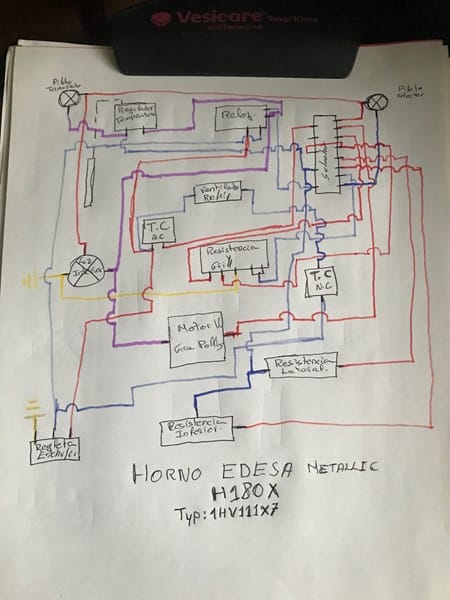 Vesicare
Piloto
Termostato
Regulador
Temperatura
Reloj
Piloto
Selector
Selector
Ventilador
T.C
N.C
Resistencia
Grill
Luz
Interior
T.C
N.C
Motor V
Gira Pollos
Resistencia
Resistencia
Inferior.
Regleta
Enchufe
HORNO EDESA METALLIC
H180X
Typ: 1HV111X7